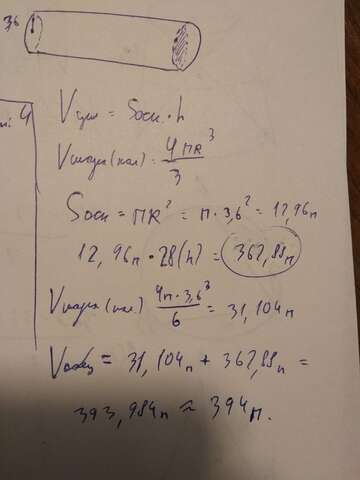 3,6
4
Vцил = Sосн · h
Vшара(пол.) = 4ПR³/3
Sосн = ПR² = П · 3,6² = 12,96п
12,96п · 28(h) = 362,88п
Vшара(пол.) 4п · 3,6³/6 = 31,104п
Vобщ = 31,104п + 362,88п =
393,984п ≈ 394п.